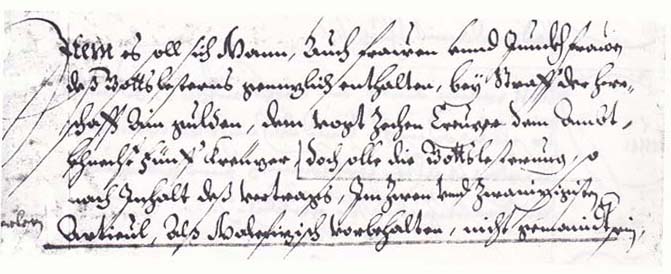 Item es soll sich Mann, Auch frawen vnnd Junckhfrawen
deß Gottslesterns genntzlich enthalten, bey Straff der herr-
schafft Ain gulden, dem vogt Zechen Creuzer dem Ambt-
khnecht Fünff Kreuzer doch solle die Gottslesterung, so
nach Inhalt deß vertrags, Im Zwen vnd Zwainzigisten
Articul, Als Malefizisch vorbehalten, nicht gemaindt sein,